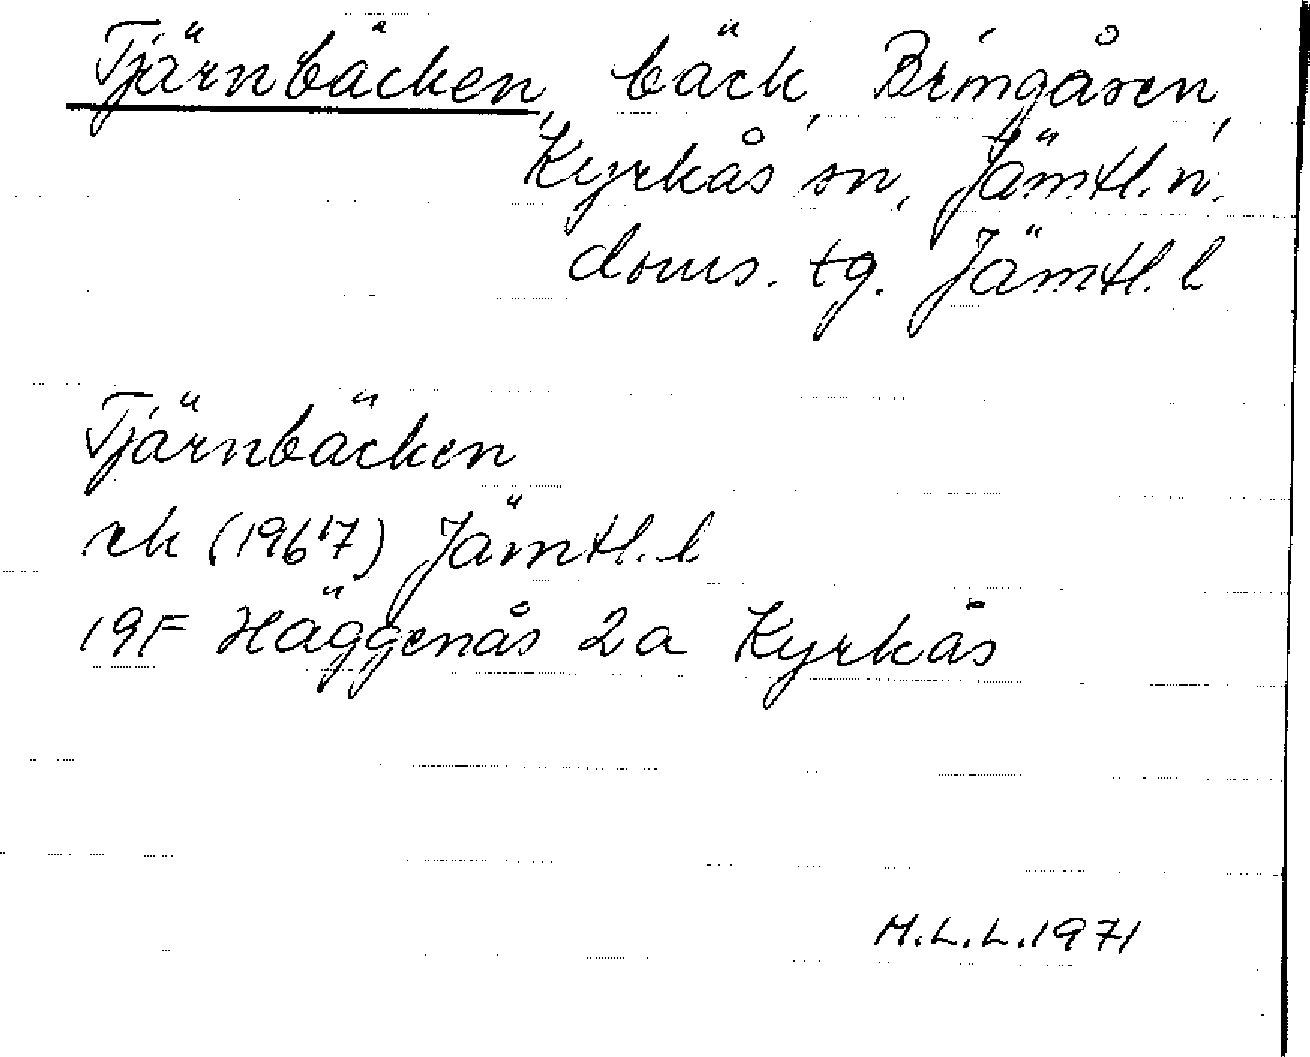 Tjärnbäcken, bäck, Bringåsen,
Kyrkås sn, Jämtl. n.
doms. tg. Jämtl. l
Tjärnbäcken
rk (1967) Jämtl. l
19F Häggenås 2a Kyrkås
M.L.L. 1971